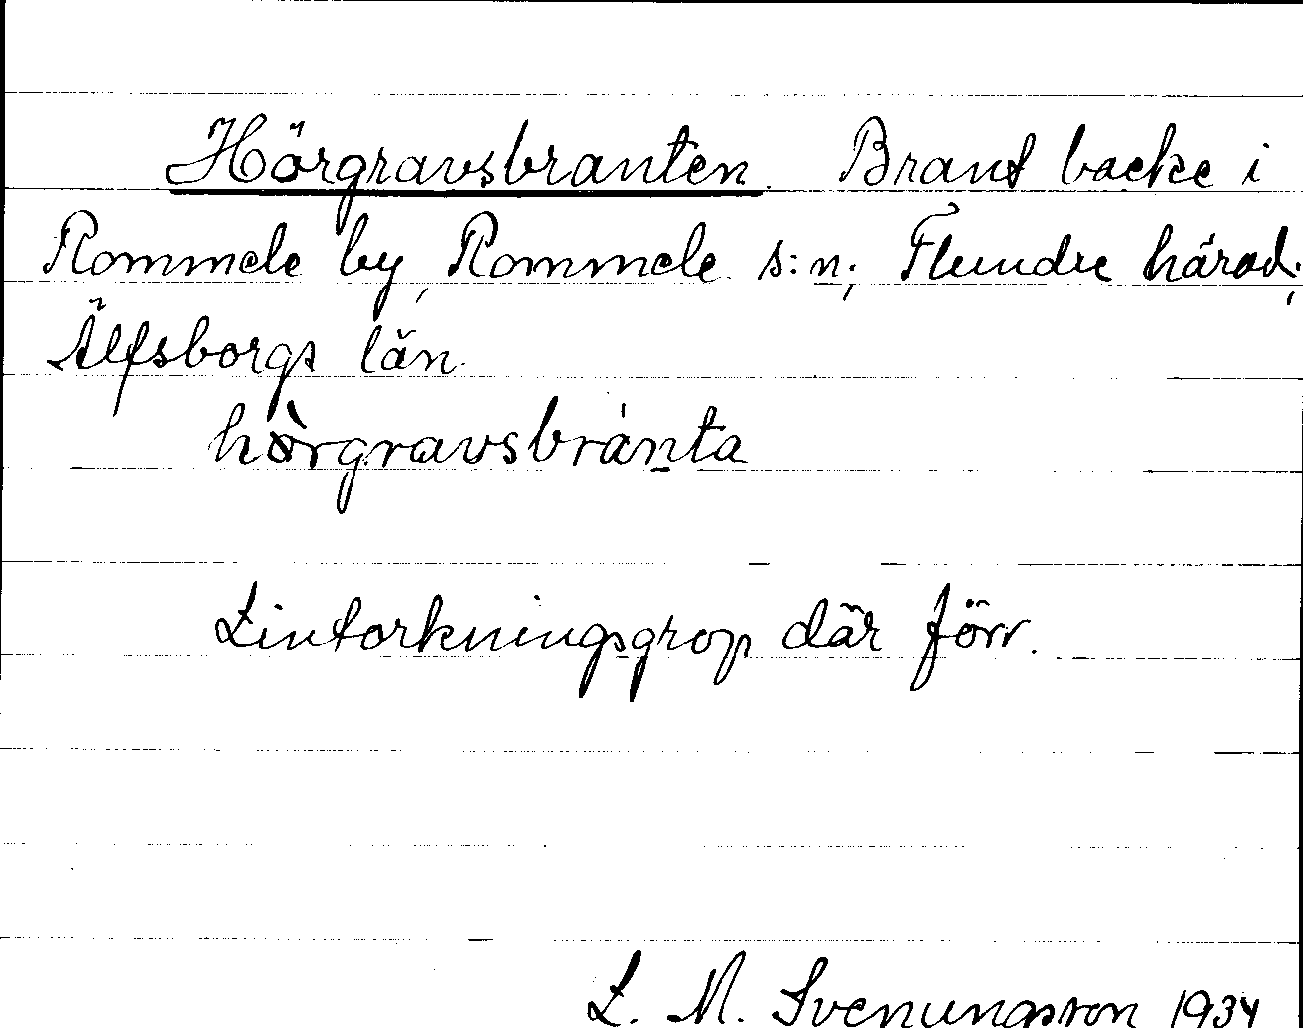 Hörgravsbranten. Brant backe i
Rommele by, Rommele s:n; Flundre härad;
Älfsborgs län.
hòrgravsbrànta
Lintorkningsgrop där förr.
L. M. Svenungsson 1934